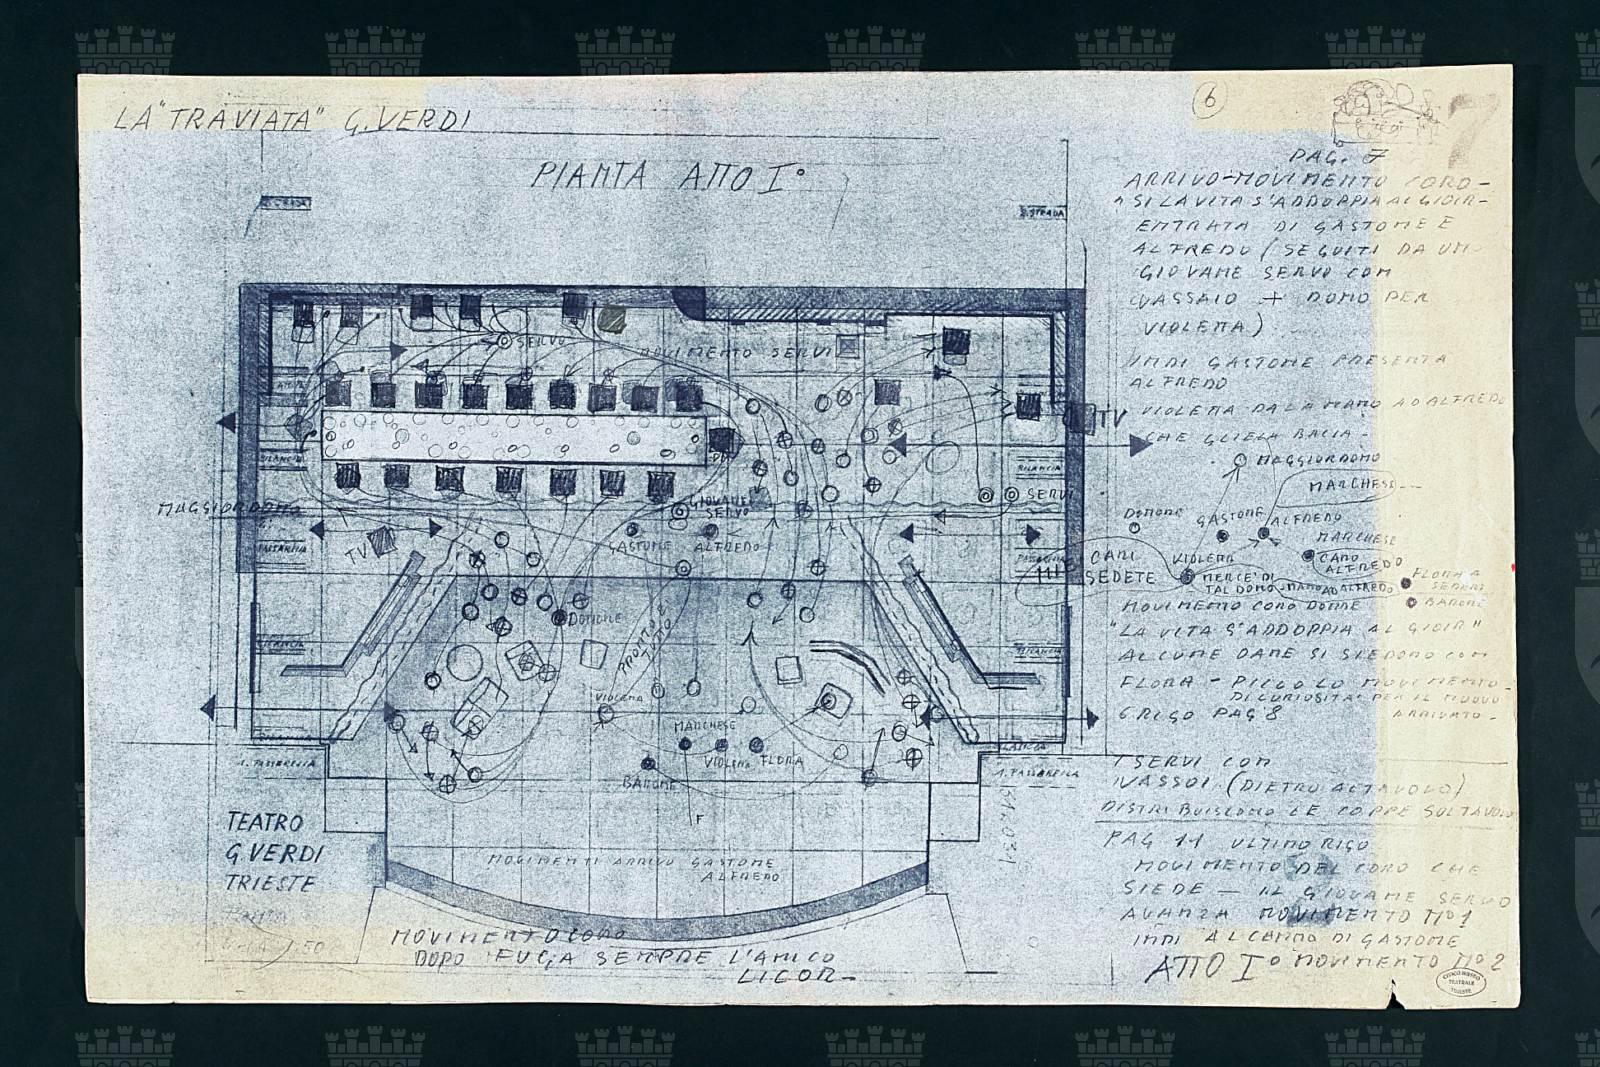 LA "TRAVIATA" G. VERDI
6
7
PIANTA ATTO I°
S. STRADA
PAG. 7
ARRIVO-MOVIMENTO CORO-
"SI LA VITA S'ADDOPPIA AL GIOIR-
ENTRATA DI GASTONE E
ALFREDO (SEGUITI DA UN
GIOVANE SERVO CON
VASSAIO + DONO PER
VIOLETTA)
INDI GASTONE PRESENTA
ALFREDO
VIOLETTA DA LA MANO AD ALFREDO
CHE GLIELA BACIA-
SERVO
MOVIMENTO SERVI
TV
MAGGIORDOMO
MARCHESE
BILANCIA
BILANCIA
SERVI
MAGGIORDOMO
GIOVANE
SERVO
GASTONE
ALFREDO
TV
PASSARELLA
PASSARELLA
DOTTORE
GASTONE
ALFREDO
MARCHESE
CARO
ALFREDO
VIOLETTA
MERCE' DI
TAL DONO
MANO AD ALFREDO
FLORA A
SEDERSI
BARONE
CARI
MIEI SEDETE
DOTTORE
PRONTO È
TUTTO
BILANCIA
BILANCIA
MOVIMENTO CORO DONNE
"LA VITA S'ADDOPPIA AL GIOIR"
ALCUNE DAME SI SIEDONO CON
FLORA - PICCOLO MOVIMENTO
DI CURIOSITA' PER IL NUOVO
ARRIVATO-
6 RIGO PAG 8
VIOLETTA
MARCHESE
VIOLETTA
FLORA
BARONE
F
1. PASSARELLA
1. PASSARELLA
I SERVI CON
VASSOI (DIETRO AL TAVOLO)
DISTRIBUISCONO LE COPPE SUL TAVOLO
PAG 11 ULTIMO RIGO
MOVIMENTO DEL CORO CHE
SIEDE - IL GIOVANE SERVO
AVANZA MOVIMENTO N° 1
INDI AL CENNO DI GASTONE
MOVIMENTO N° 2
ATTO I°
TEATRO
G. VERDI
TRIESTE
PIANTA
1:50
MOVIMENTI ARRIVO GASTONE
ALFREDO
MOVIMENTO CORO
DOPO FUGA SEMPRE L'AMICO
LICOR-
CIVICO MUSEO
TEATRALE
TRIESTE